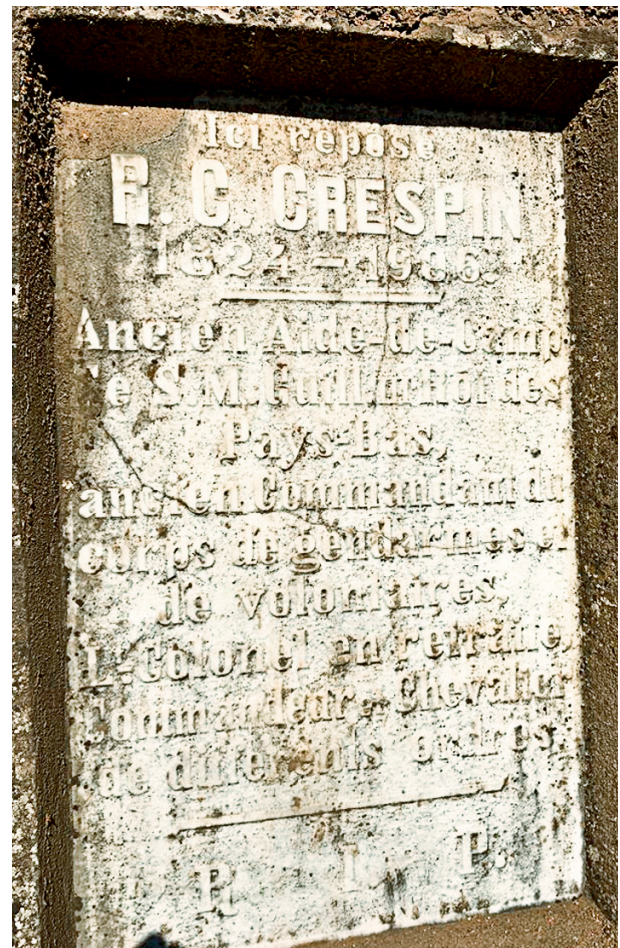 Ici repose
R. C. CRESPIN
1824 – 1906.
Ancien Aide-de-Camp
de S. M. Guill. III Roi des
Pays-Bas,
ancien Commandant du
corps de gendarmes et
de volontaires,
Lt. Colonel en retraite,
Commandeur et Chevalier
de différents ordres.
R. I. P.